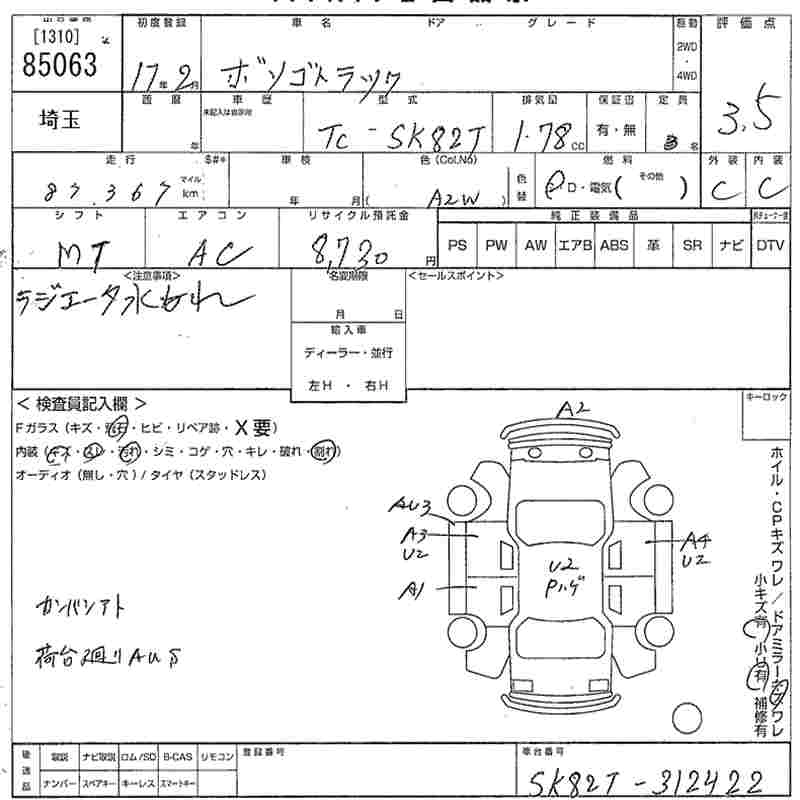 [1310]
85063
初度登録
17年2月
車名
ドア
グレード
ボンゴトラック
駆動
2WD
・
4WD
評価点
3.5
埼玉
年
車歴
型式
TC-SK82T
排気量
1.78cc
保証書
有・無
定員
3名
走行
S#*
87,367
マイル
km
車検
年 月
色(Col,No)
( A2W )
色替
燃料
D・電気( その他 )
外装
C
内装
C
シフト
MT
エアコン
AC
リサイクル預託金
8,730円
純正装備品
PS PW AW エアB ABS 革 SR ナビ DTV
<注意事項>
ラジエータ水もれ
名変期限
月 日
輸入車
ディーラー・並行
左H ・ 右H
<セールスポイント>
<検査員記入欄>
Fガラス(キズ・飛石・ヒビ・リペア跡・X要)
内装(キズ・スレ・汚れ・シミ・コゲ・穴・キレ・破れ・割れ)
オーディオ(無し・穴)/タイヤ(スタッドレス)
キーロック
A2
AU3
A3
U2
A1
U2
Pハゲ
A4
U2
カンバンアト
荷台廻りAUS
ホイル・CPキズ ワレ/ドアミラーキズワレ
小キズ有 小U有 補修有
後送品
取説 ナビ取説 ロム/SD B-CAS リモコン
ナンバー スペアキー キーレス スマートキー
登録番号
車台番号
SK82T-312422